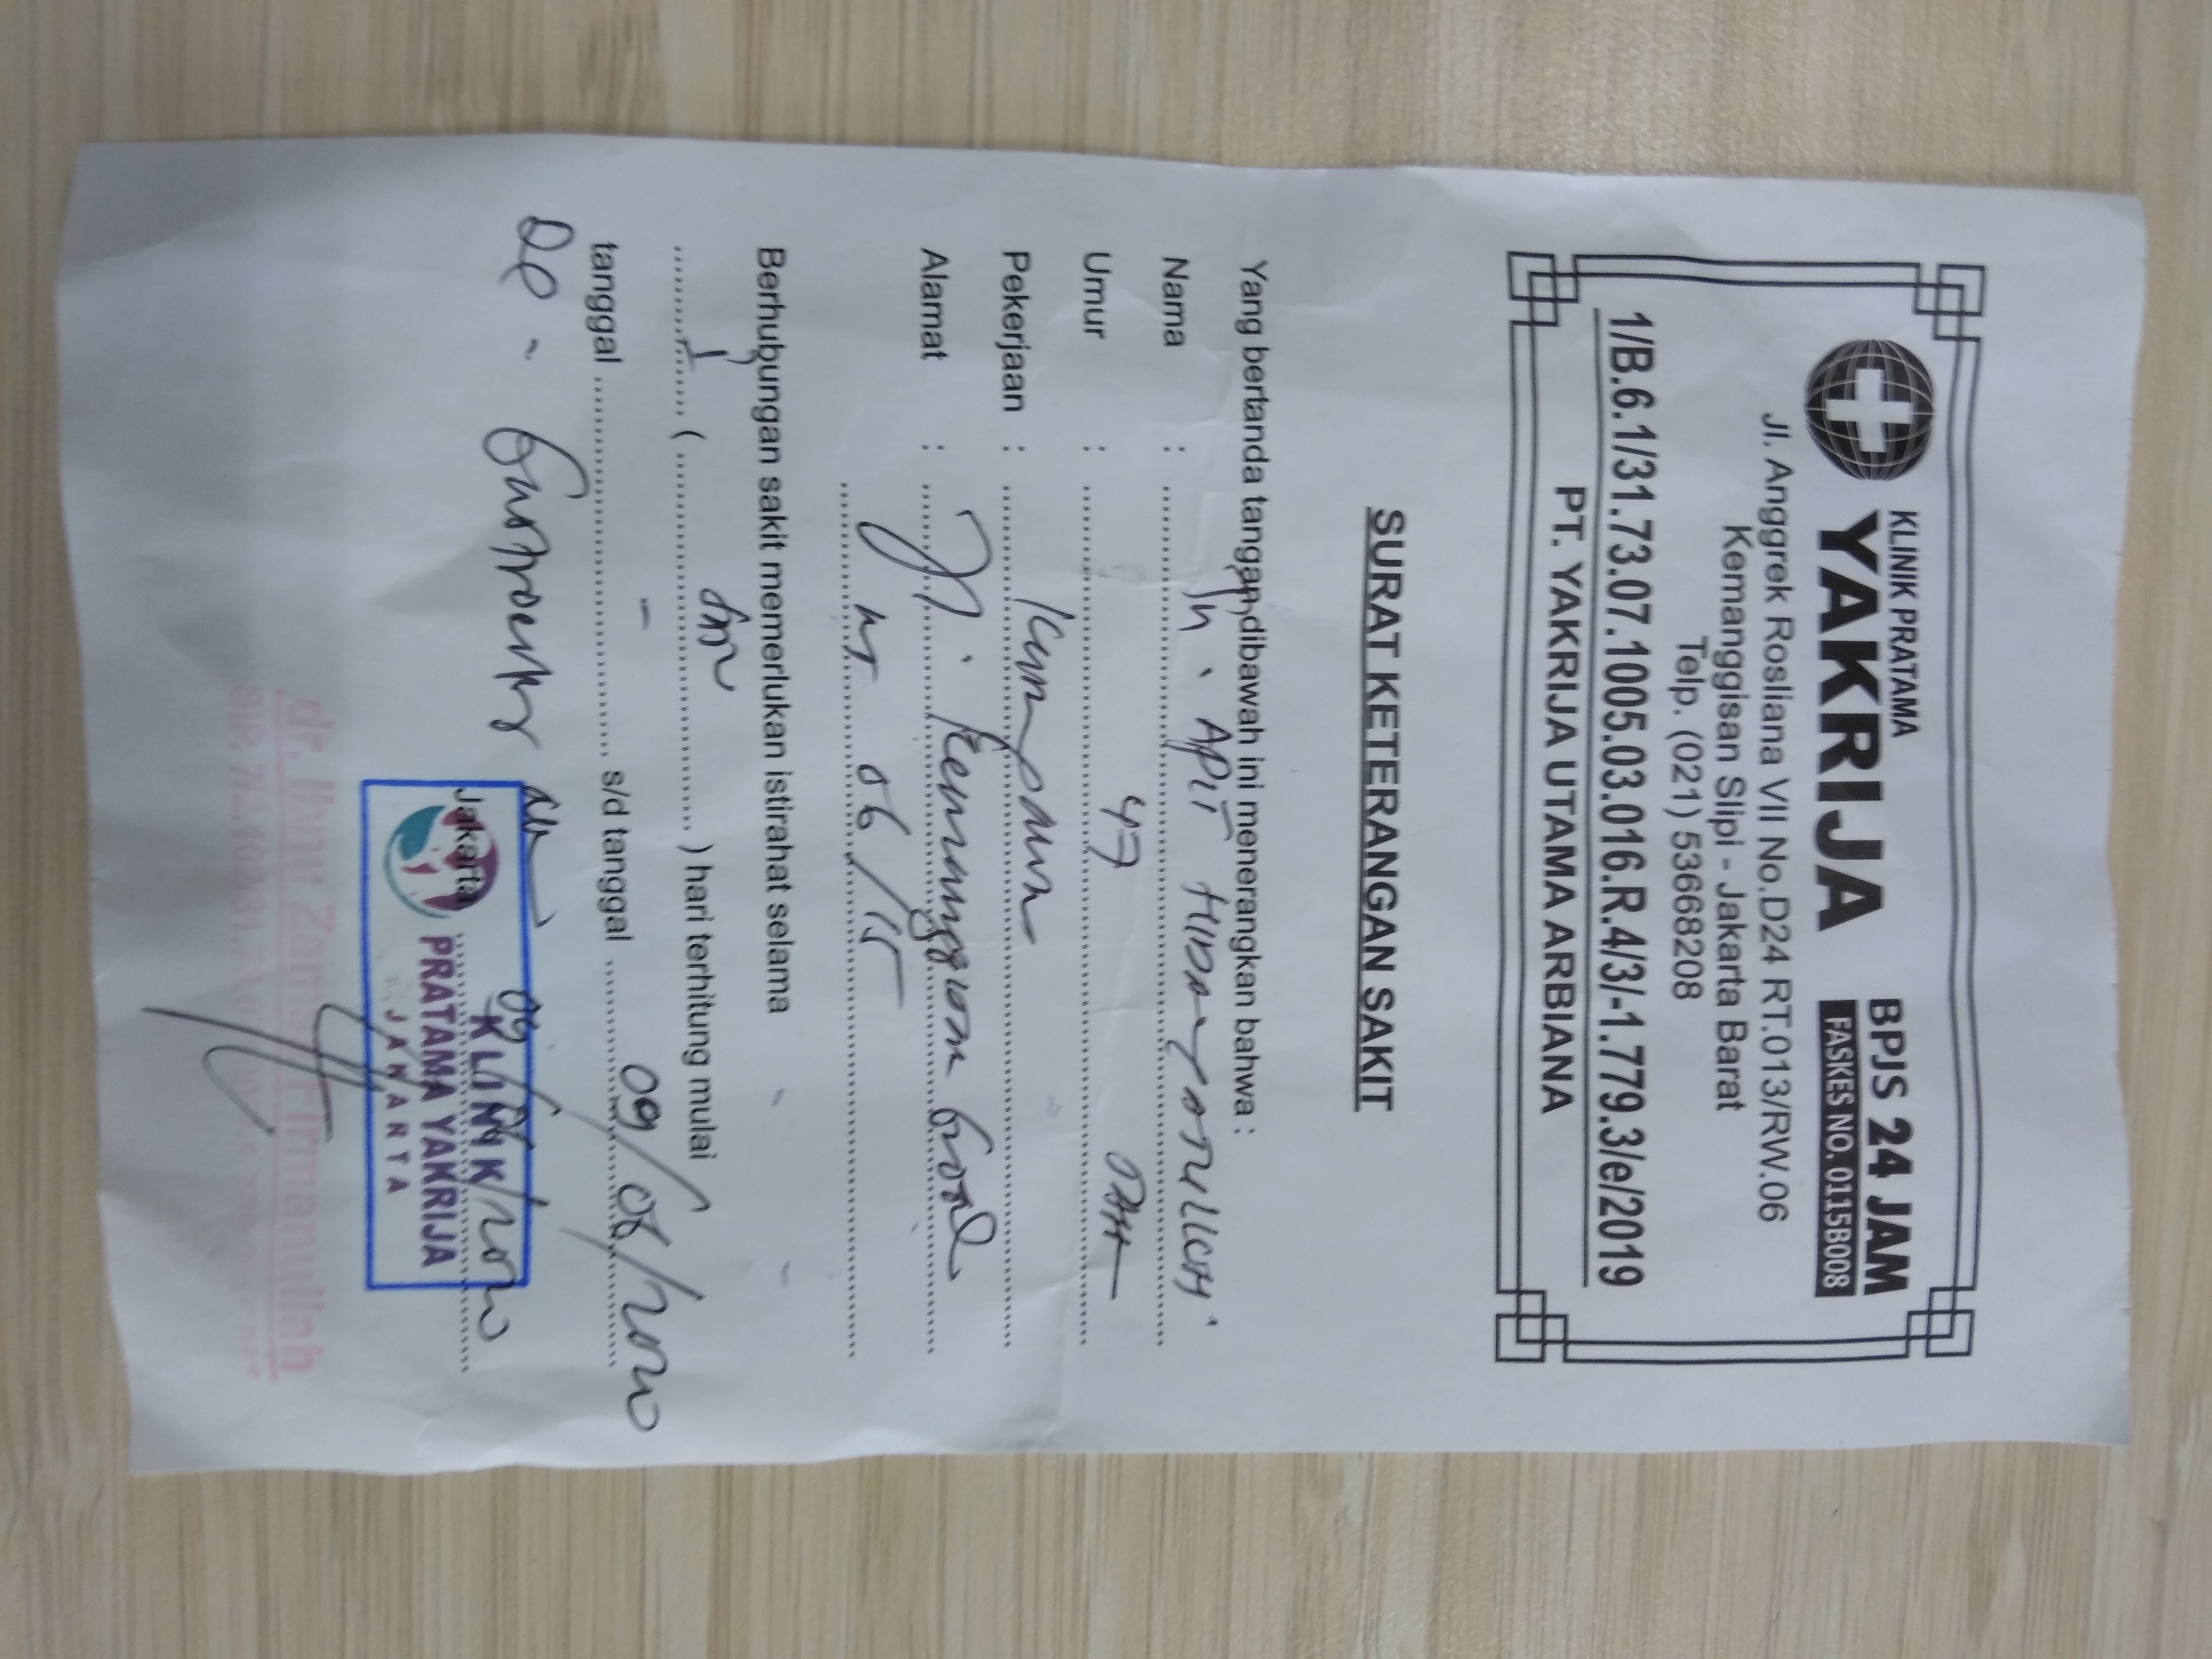 KLINIK PRATAMA
YAKRIJA
BPJS 24 JAM
FASKES NO. 0115B008
Jl. Anggrek Rosliana VII No.D24 RT.013/RW.06
Kemanggisan Slipi - Jakarta Barat
Telp. (021) 53668208
1/B.6.1/31.73.07.1005.03.016.R.4/3/-1.779.3/e/2019
PT. YAKRIJA UTAMA ARBIANA
SURAT KETERANGAN SAKIT
Yang bertanda tangan dibawah ini menerangkan bahwa :
Nama : Tn. Apit
Umur : 47
Pekerjaan :
Alamat : Jl.
RT 06/15
Berhubungan sakit memerlukan istirahat selama
1 ( ) hari terhitung mulai
tanggal - s/d tanggal 09/06/2020
Jakarta,
KLINIK
PRATAMA YAKRIJA
JAKARTA
dr. Ibnu Firmanullah